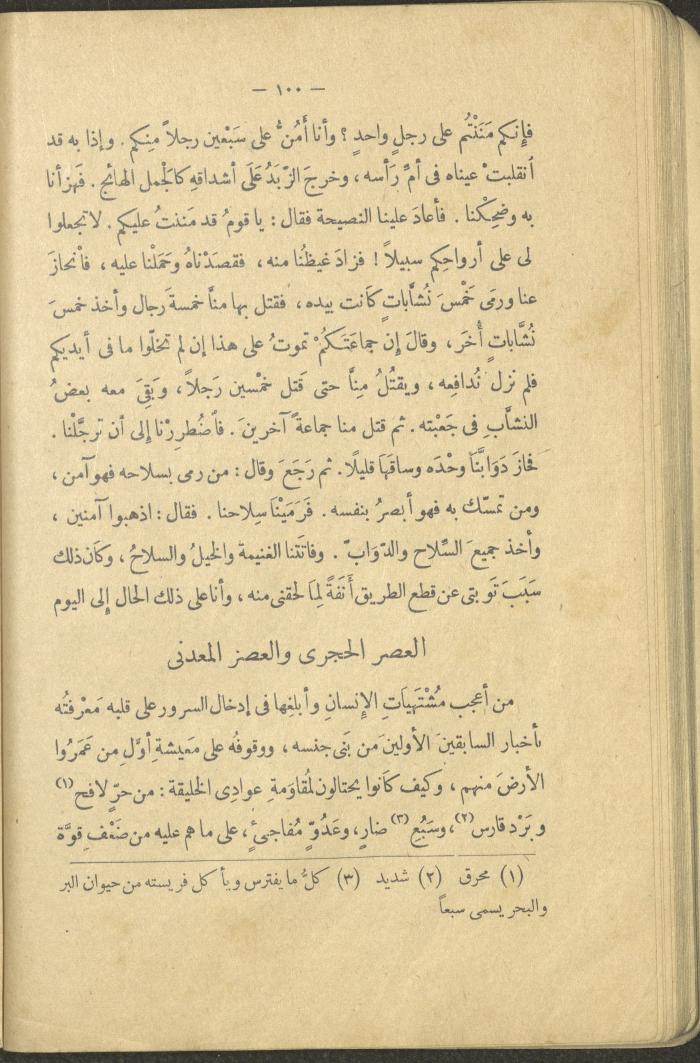 — ١٠٠ —
فإنكم مَنَنْتُم على رجلٍ واحدٍ ؟ وأنا أَمُنُّ على سَبْعين رجلاً مِنكم . وإذا به قد
أنقلبتْ عيناه فى أمِّ رَأسه ، وخرجَ الزّبَدُ عَلَى أشداقهِ كالْجمل الهائج . فَهزأنا
به وضَحِكْنا . فأعادَ علينا النصيحة فقال : يا قومُ قد مَننتُ عليكم . لا تجعلوا
لى على أرواحِكم سبيلاً ! فزادَ غيظُنا منه ، فقصَدْناهُ وحَمَلْنا عليه ، فأنحازَ
عنا ورمَى خَمْسَ نُشَّاباتٍ كانت بيده ، فقتل بها منَّا خمسةَ رجال وأخذ خمسَ
نُشَّاباتٍ أُخَر ، وقالَ إن جماعَتَكمُ تموتُ على هذا إن لم تخلّوا ما فى أيديكم
فلم نزل نُدافِعه ، ويقتُلُ مِنَّا حتى قَتل خمْسين رَجلاً ، وبَقِىَ معه بعضُ
النشَّابِ فى جَعْبته . ثم قتل منا جماعةً آخرينَ . فأضْطررْنا إلى أن ترجَّلْنا .
فحازَ دَوَابَّنا وحْدَه وساقَها قليلًا . ثم رَجَعَ وقال : من رمى بسلاحه فهو آمن ،
ومن تمسّك به فهو أبصرُ بنفسه . فَرَمَيْنا سِلاحنا . فقال : اذهبوا آمنين ،
وأخذ جميعَ السِّلاح والدّوَابّ . وفاتَتنا الغنيمة والخيلُ والسلاحُ ، وكان ذلك
سَبَبَ تَوبتى عن قطع الطريق أَنَفَةً لِمَا لحقنى منه ، وأنا على ذلك الحال إلى اليوم
العصر الحجرى والعصر المعدنى
من أعجب مُشْتَهَياتِ الإنسانِ وأبلغِها فى إدخال السرور على قلبه مَعْرفتُه
بأخبار السابقينَ الأولينَ من بَنى جنسه ، ووقوفُه على مَعيشةِ أوّلِ من عَمَرُوا
الأرضَ منهم ، وكيف كانوا يحتالون لمُقاوَمةِ عوادِى الخليقة : من حرّ لافح (١)
وبَرْد قارس (٢) ، وسَبُعِ (٣) ضارٍ ، وعَدُوّ مُفاجىءٍ ، على ما هم عليه من ضَعْفِ قوَّة
(١) محرق (٢) شديد (٣) كلُّ ما يفترس ويأكل فريسته من حيوان البر
والبحر يسمى سبعاً